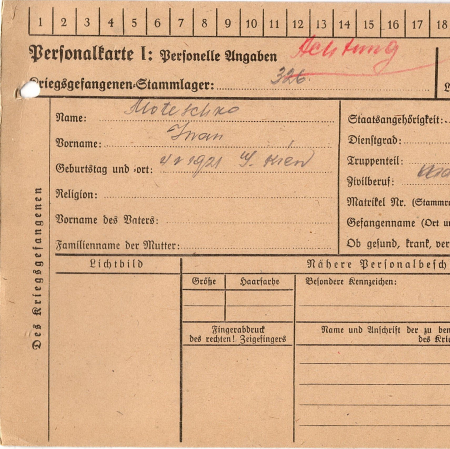 1 2 3 4 5 6 7 8 9 10 11 12 13 14 15 16 17 18
Personalkarte I: Personelle Angaben Achtung
Kriegsgefangenen-Stammlager: 326
Des Kriegsgefangenen
Name: Moteschko
Vorname: Iwan
Geburtstag und -ort: 1921 Kiew
Religion:
Vorname des Vaters:
Familienname der Mutter:
Staatsangehörigkeit:
Dienstgrad:
Truppenteil:
Zivilberuf:
Matrikel Nr. (Stammro
Gefangenname (Ort u
Ob gesund, krank, ver
Lichtbild
Nähere Personalbesch
Größe Haarfarbe Besondere Kennzeichen:
Fingerabdruck
des rechten! Zeigefingers
Name und Anschrift der zu ben
des Krie